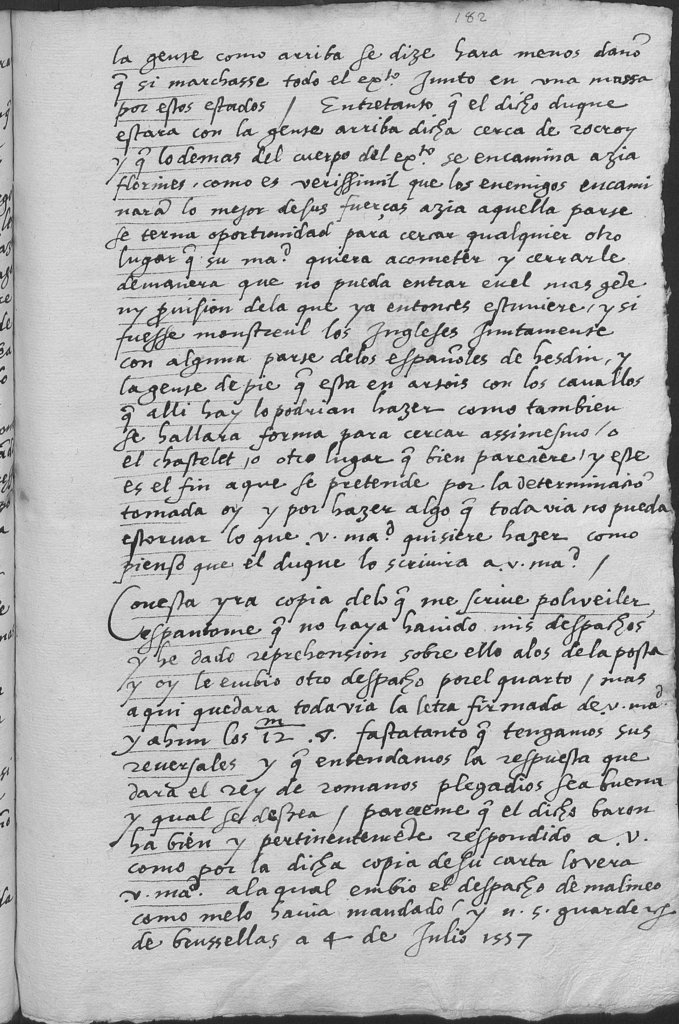 182
la gente como arriba se dize hara menos daño
q̃ si marchasse todo el ex.to Junto en vna massa
por estos estados / Entretanto q̃ el dicho duque
estara con la gente arriba dicha cerca de rocroy
y q̃ lo demas del cuerpo del ex.to se encamina azia
florines. como es verissimil que los enemigos encami
naran lo mejor de sus fuercas azia aquella parte
se terna oportunidad para cercar qualquier otro
lugar q̃ su ma.d quiera acometer y cerrarle
demanera que no pueda entrar en el mas gẽte
ny prouision dela que ya entonces estuuiere, y si
fuesse monstreul los Ingleses Juntamente
con alguna parte delos españoles de hesdin, y
la gente de pie q̃ esta en artois con los cauallos
q̃ alli hay lo podrian hazer como tambien
se hallara forma para cercar assimesmo / o
el chastelet, o otro lugar q̃ bien parecere, y este
es el fin a que se pretende por la determinaciõ
tomada oy y por hazer algo q̃ toda via no pueda
estoruar lo que .v. ma.d quisiere hazer como
pienso que el duque lo scriuira a .v. ma.d /
Conesta yra copia delo q̃ me scriue polweiler
espantome q̃ no haya hauido mis despachos
y he dado reprehension sobre ello alos de la posta
y oy le embio otro despacho por el quarto / mas
aqui quedara toda via la letra firmada de .v. ma.d
y ahun los 12 m fasta tanto q̃ tengamos sus
reuersales y q̃ entendamos la respuesta que
dara el rey de romanos plega a dios sea buena
y qual se dessea / pareceme q̃ el dicho baron
ha bien y pertinentemẽte respondido a .v.
como por la dicha copia de su carta lo vera
.v. ma.d. ala qual embio el despacho de malineo
como melo hauia mandado / y n. s. guarde
de brussellas a 4 de Julio 1557